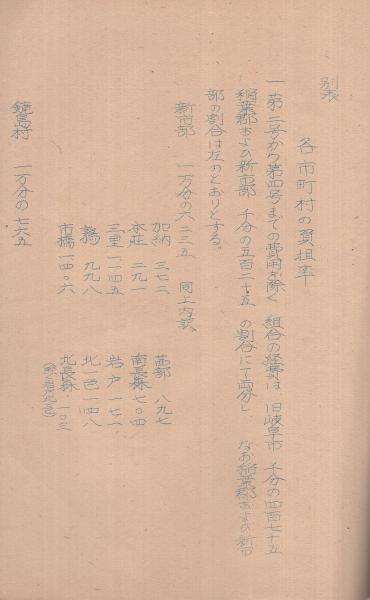 別表
各市町村の負担率
一 第二号から第四号までの費用を除く 組合の経費は 旧岐阜市 千分の四百七十五
稲葉郡および新市部 千分の五百二十五 の割合にて両分し なお稲葉郡および新市
部の割合は左のとおりとする。
新市部 一万分の六二三五 同上内訳
加納 三七二 茜部 八九七
本荘 二九一 南長森 七〇四
三里 一一四五 岩戸 一七一
鶉 九九八 北一色 一四八
市橋 一四〇六 北長森 一〇三
鏡島村 一万分の七六五